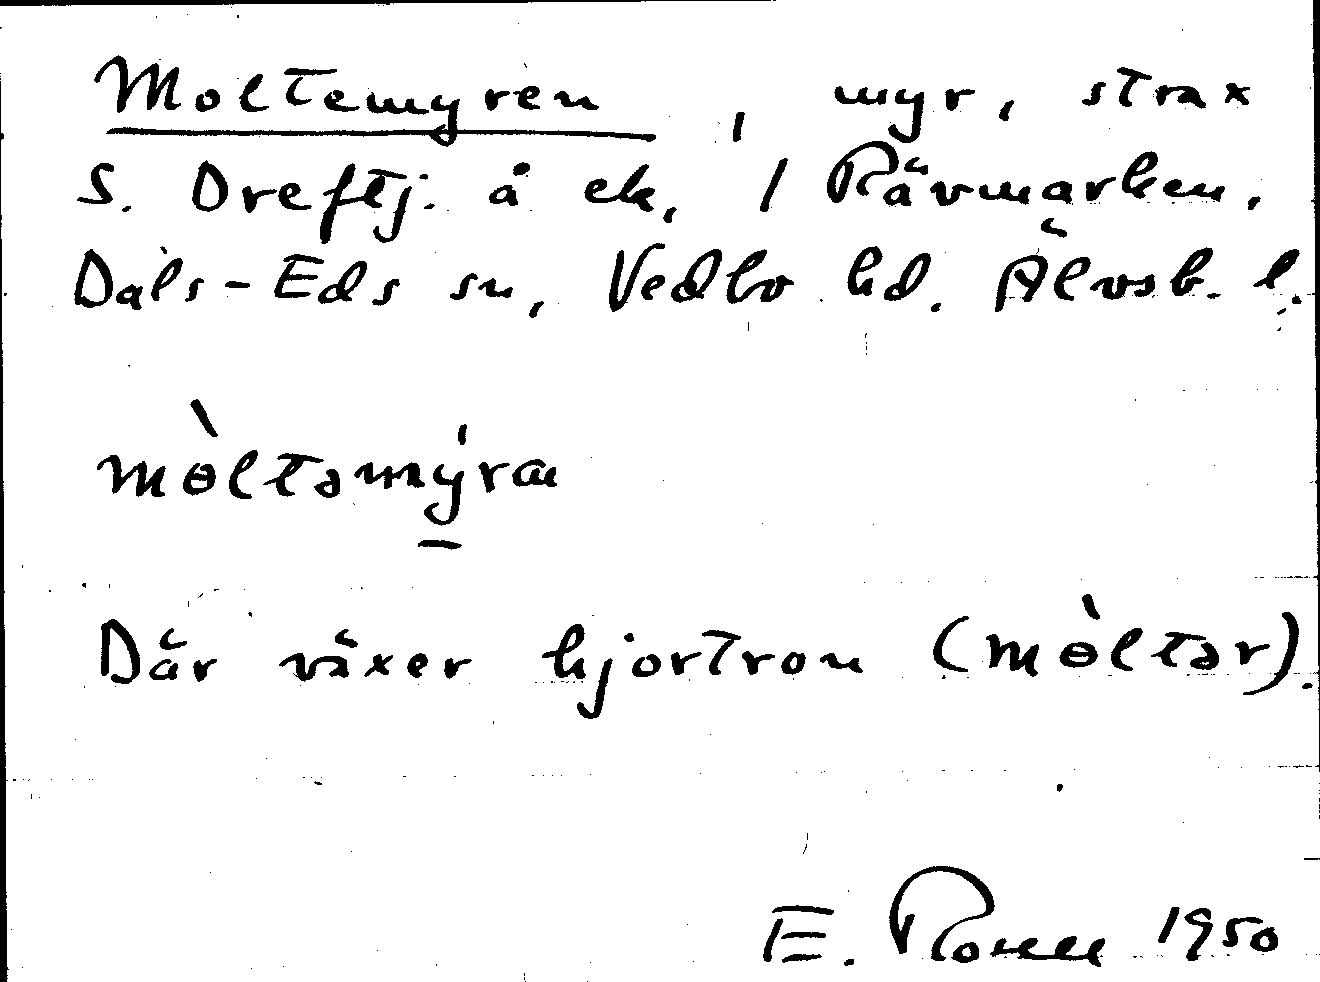 Moltemyren, myr, strax
S. Dreftj. å ek, 1 Rävmarken,
Dals-Eds sn, Vedbo hd. Älvsb. l.
mɵ̀ltəmýra
Där växer hjortron (mɵ̀ltər).
E. Rosell 1950